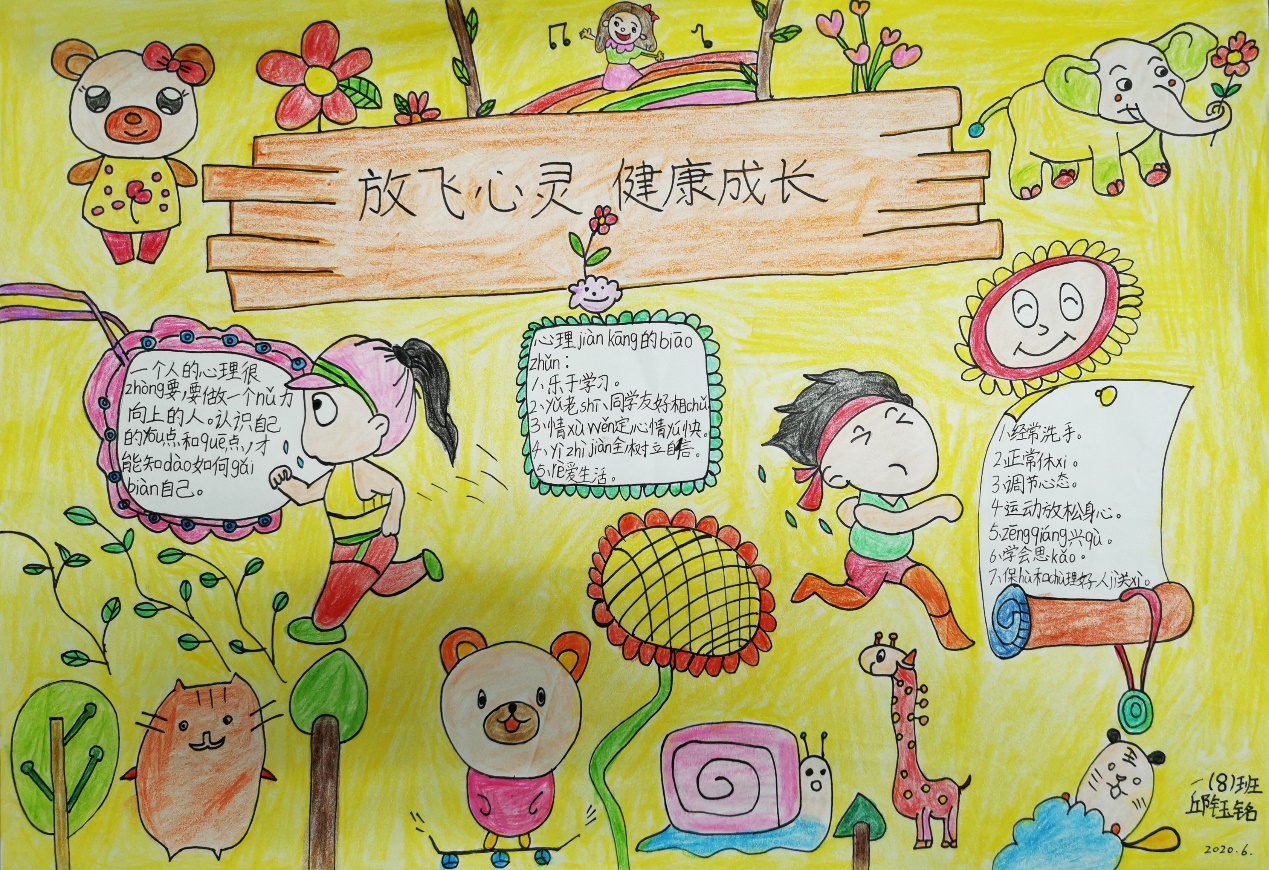 放飞心灵 健康成长
一个人的心理很
zhòng要,要做一个nǔ力
向上的人。认识自己
的yōu点和quē点,才
能知dào如何gǎi
biàn自己。
心理jiàn kāng的biāo
zhǔn:
1、乐于学习。
2、yǔ老shī、同学友好相chǔ。
3、情xù wěn定心情yú快。
4、yì zhì jiàn全树立自信。
5、rè爱生活。
1、经常洗手。
2、正常休xi。
3、调节心态。
4、运动放松身心。
5、zēngqiáng兴qù。
6、学会思kǎo。
7、保hù和chǔ理好人jì关xì。
一(8)班
邱钰铭
2020.6.